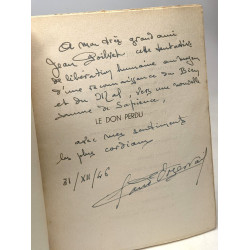 A mon très grand ami
Jean Boilvet cette tentative
de libération humaine au moyen
d'une reconnaissance du Bien
et du Mal, vers une nouvelle
somme de Sapience,
LE DON PERDU
avec mes sentiments
les plus cordiaux
31/XII/46